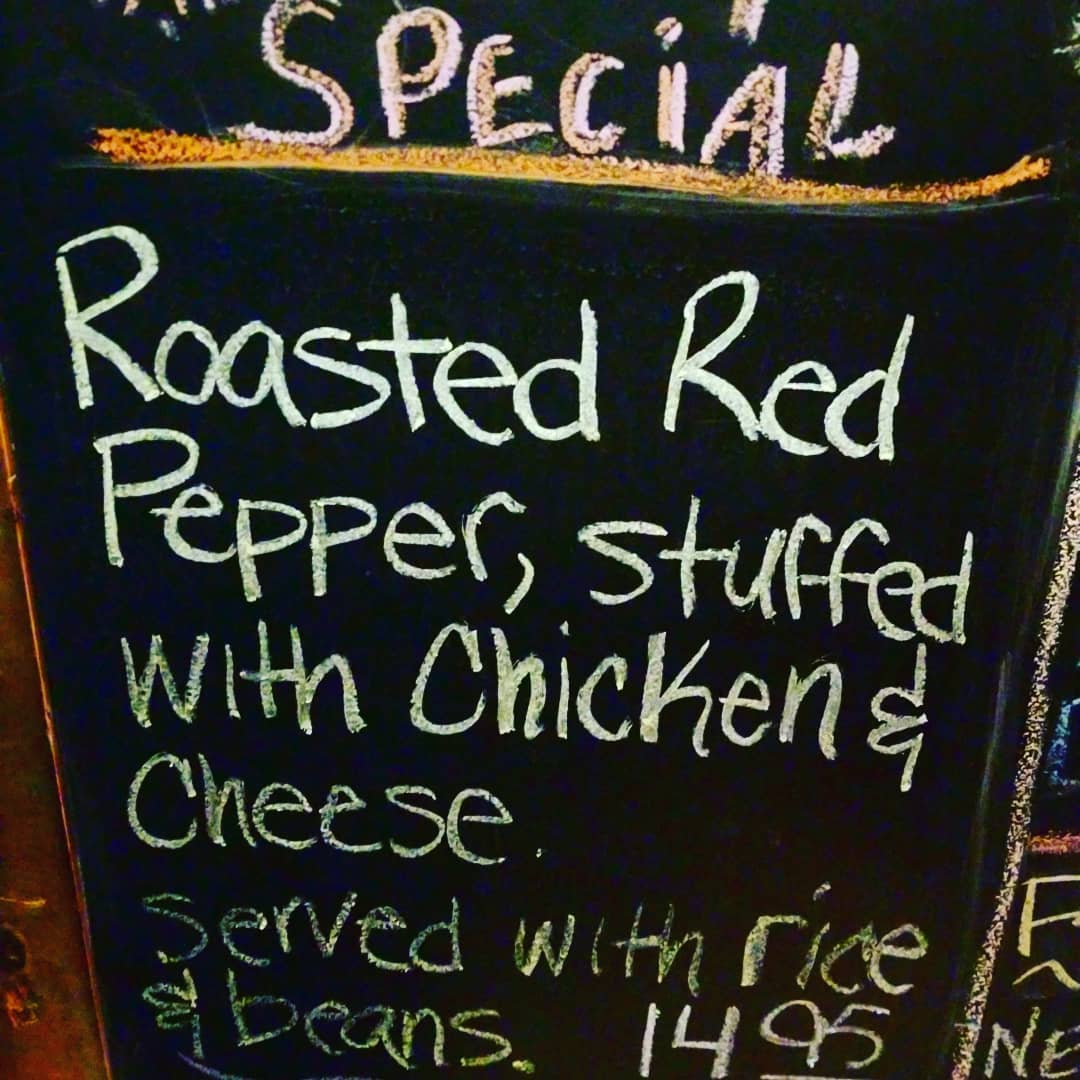 SPECIAL
Roasted Red
Pepper, stuffed
with Chicken &
Cheese.
Served with rice
& beans. 14 95
NE